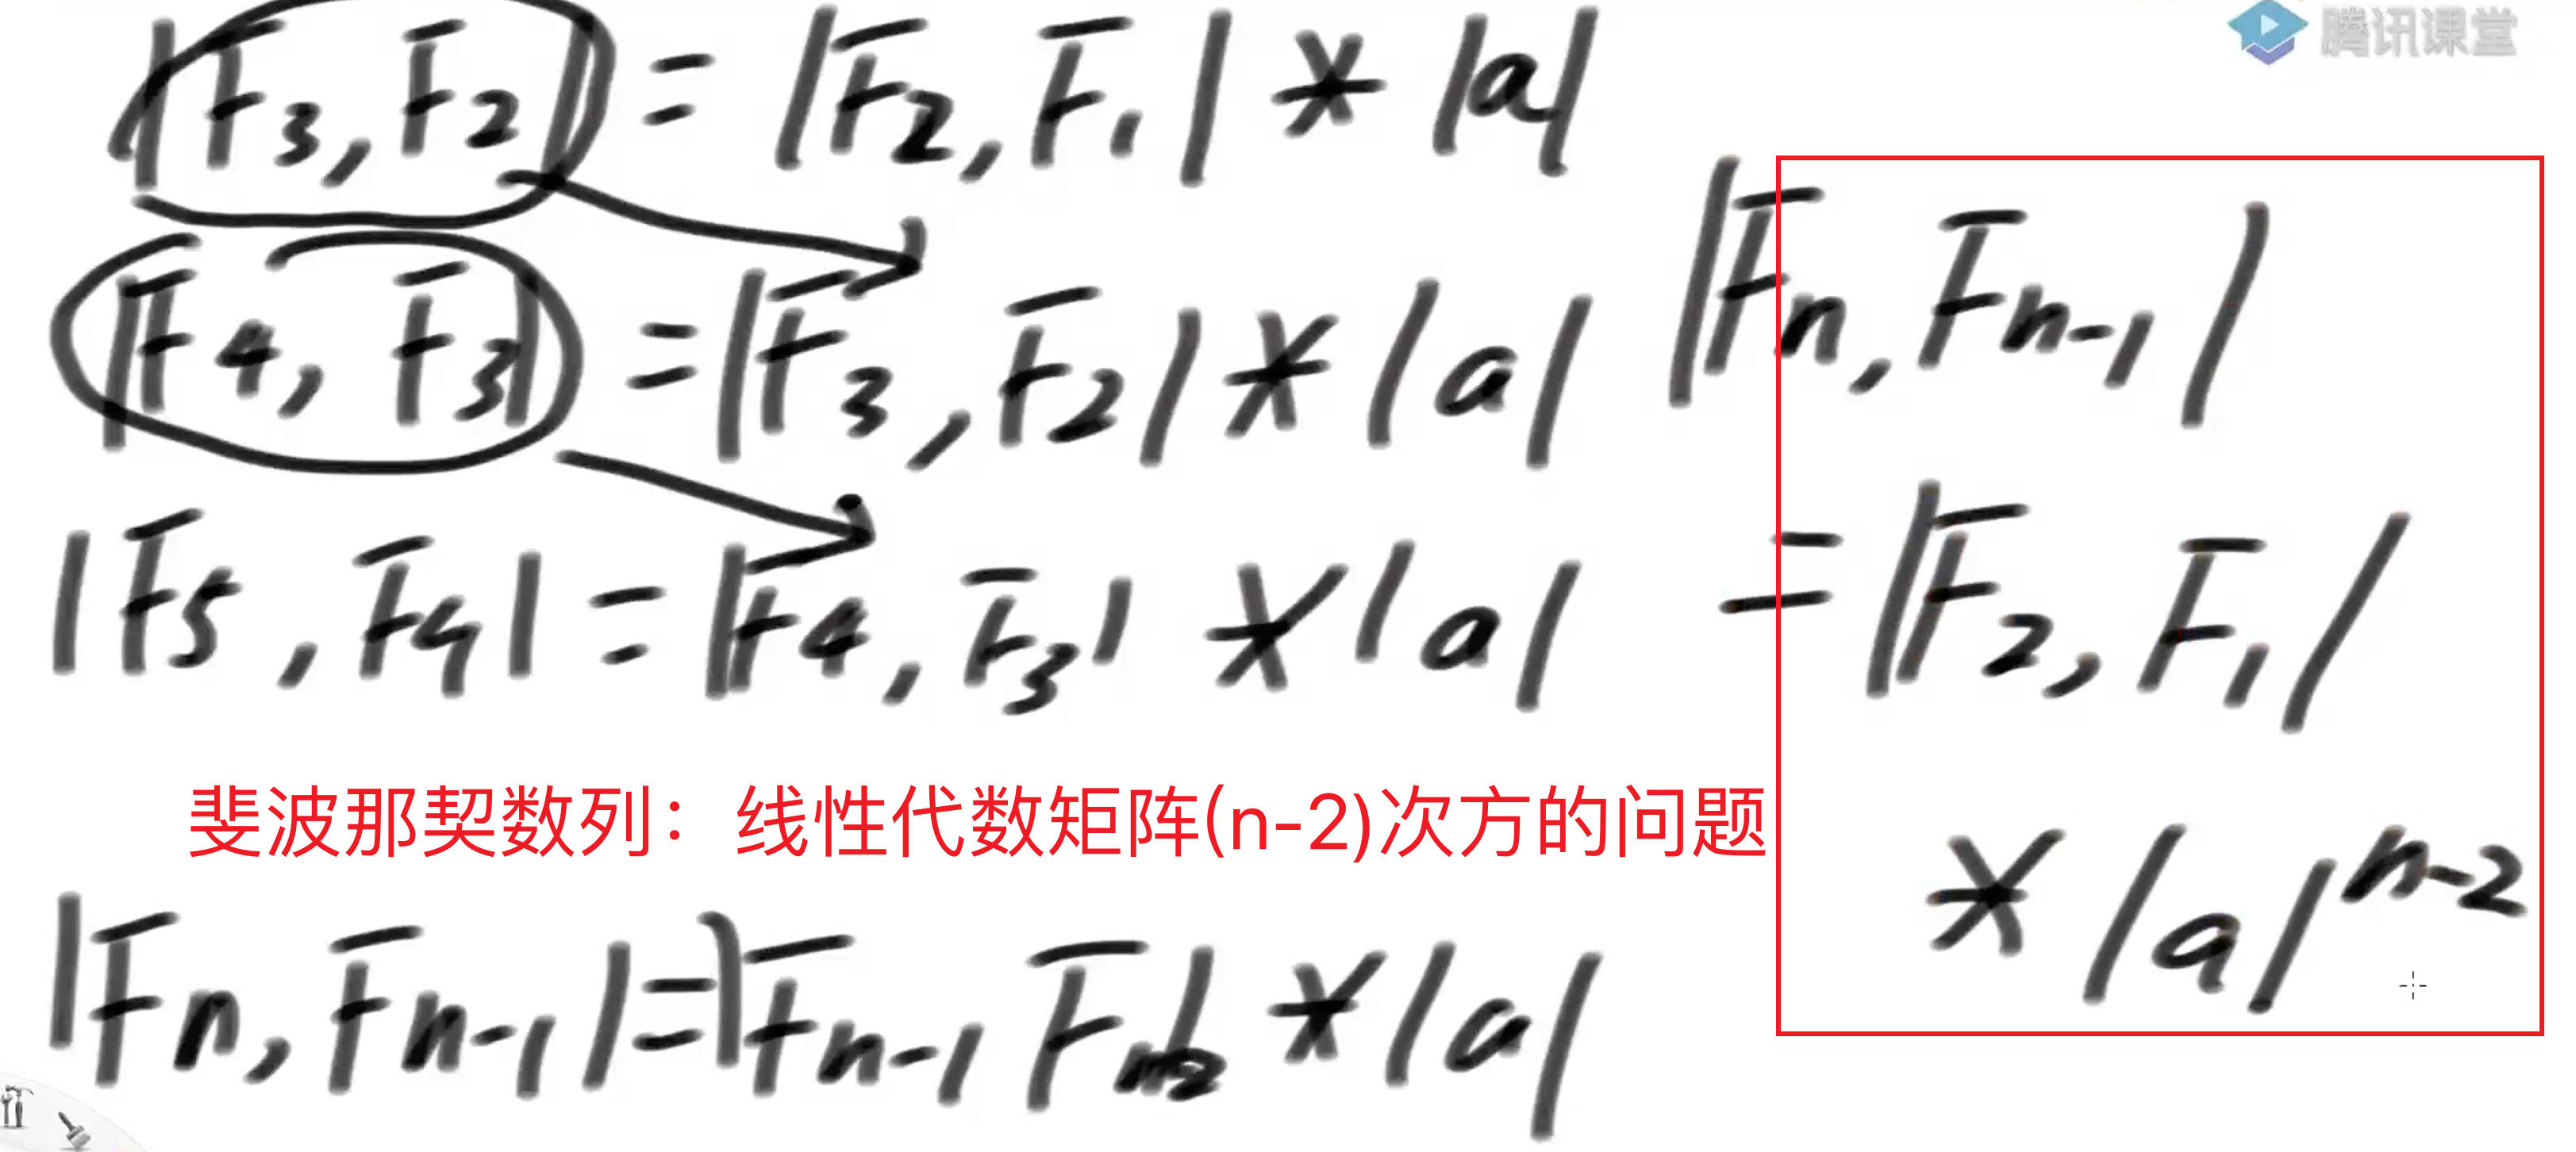 腾讯课堂
|F3,F2| = |F2,F1| * |a|
|F4,F3| = |F3,F2| * |a|
|F5,F4| = |F4,F3| * |a|
斐波那契数列：线性代数矩阵(n-2)次方的问题
|Fn,Fn-1| = |Fn-1 Fn-2| * |a|
|Fn,Fn-1|
= |F2,F1|
* |a|^n-2